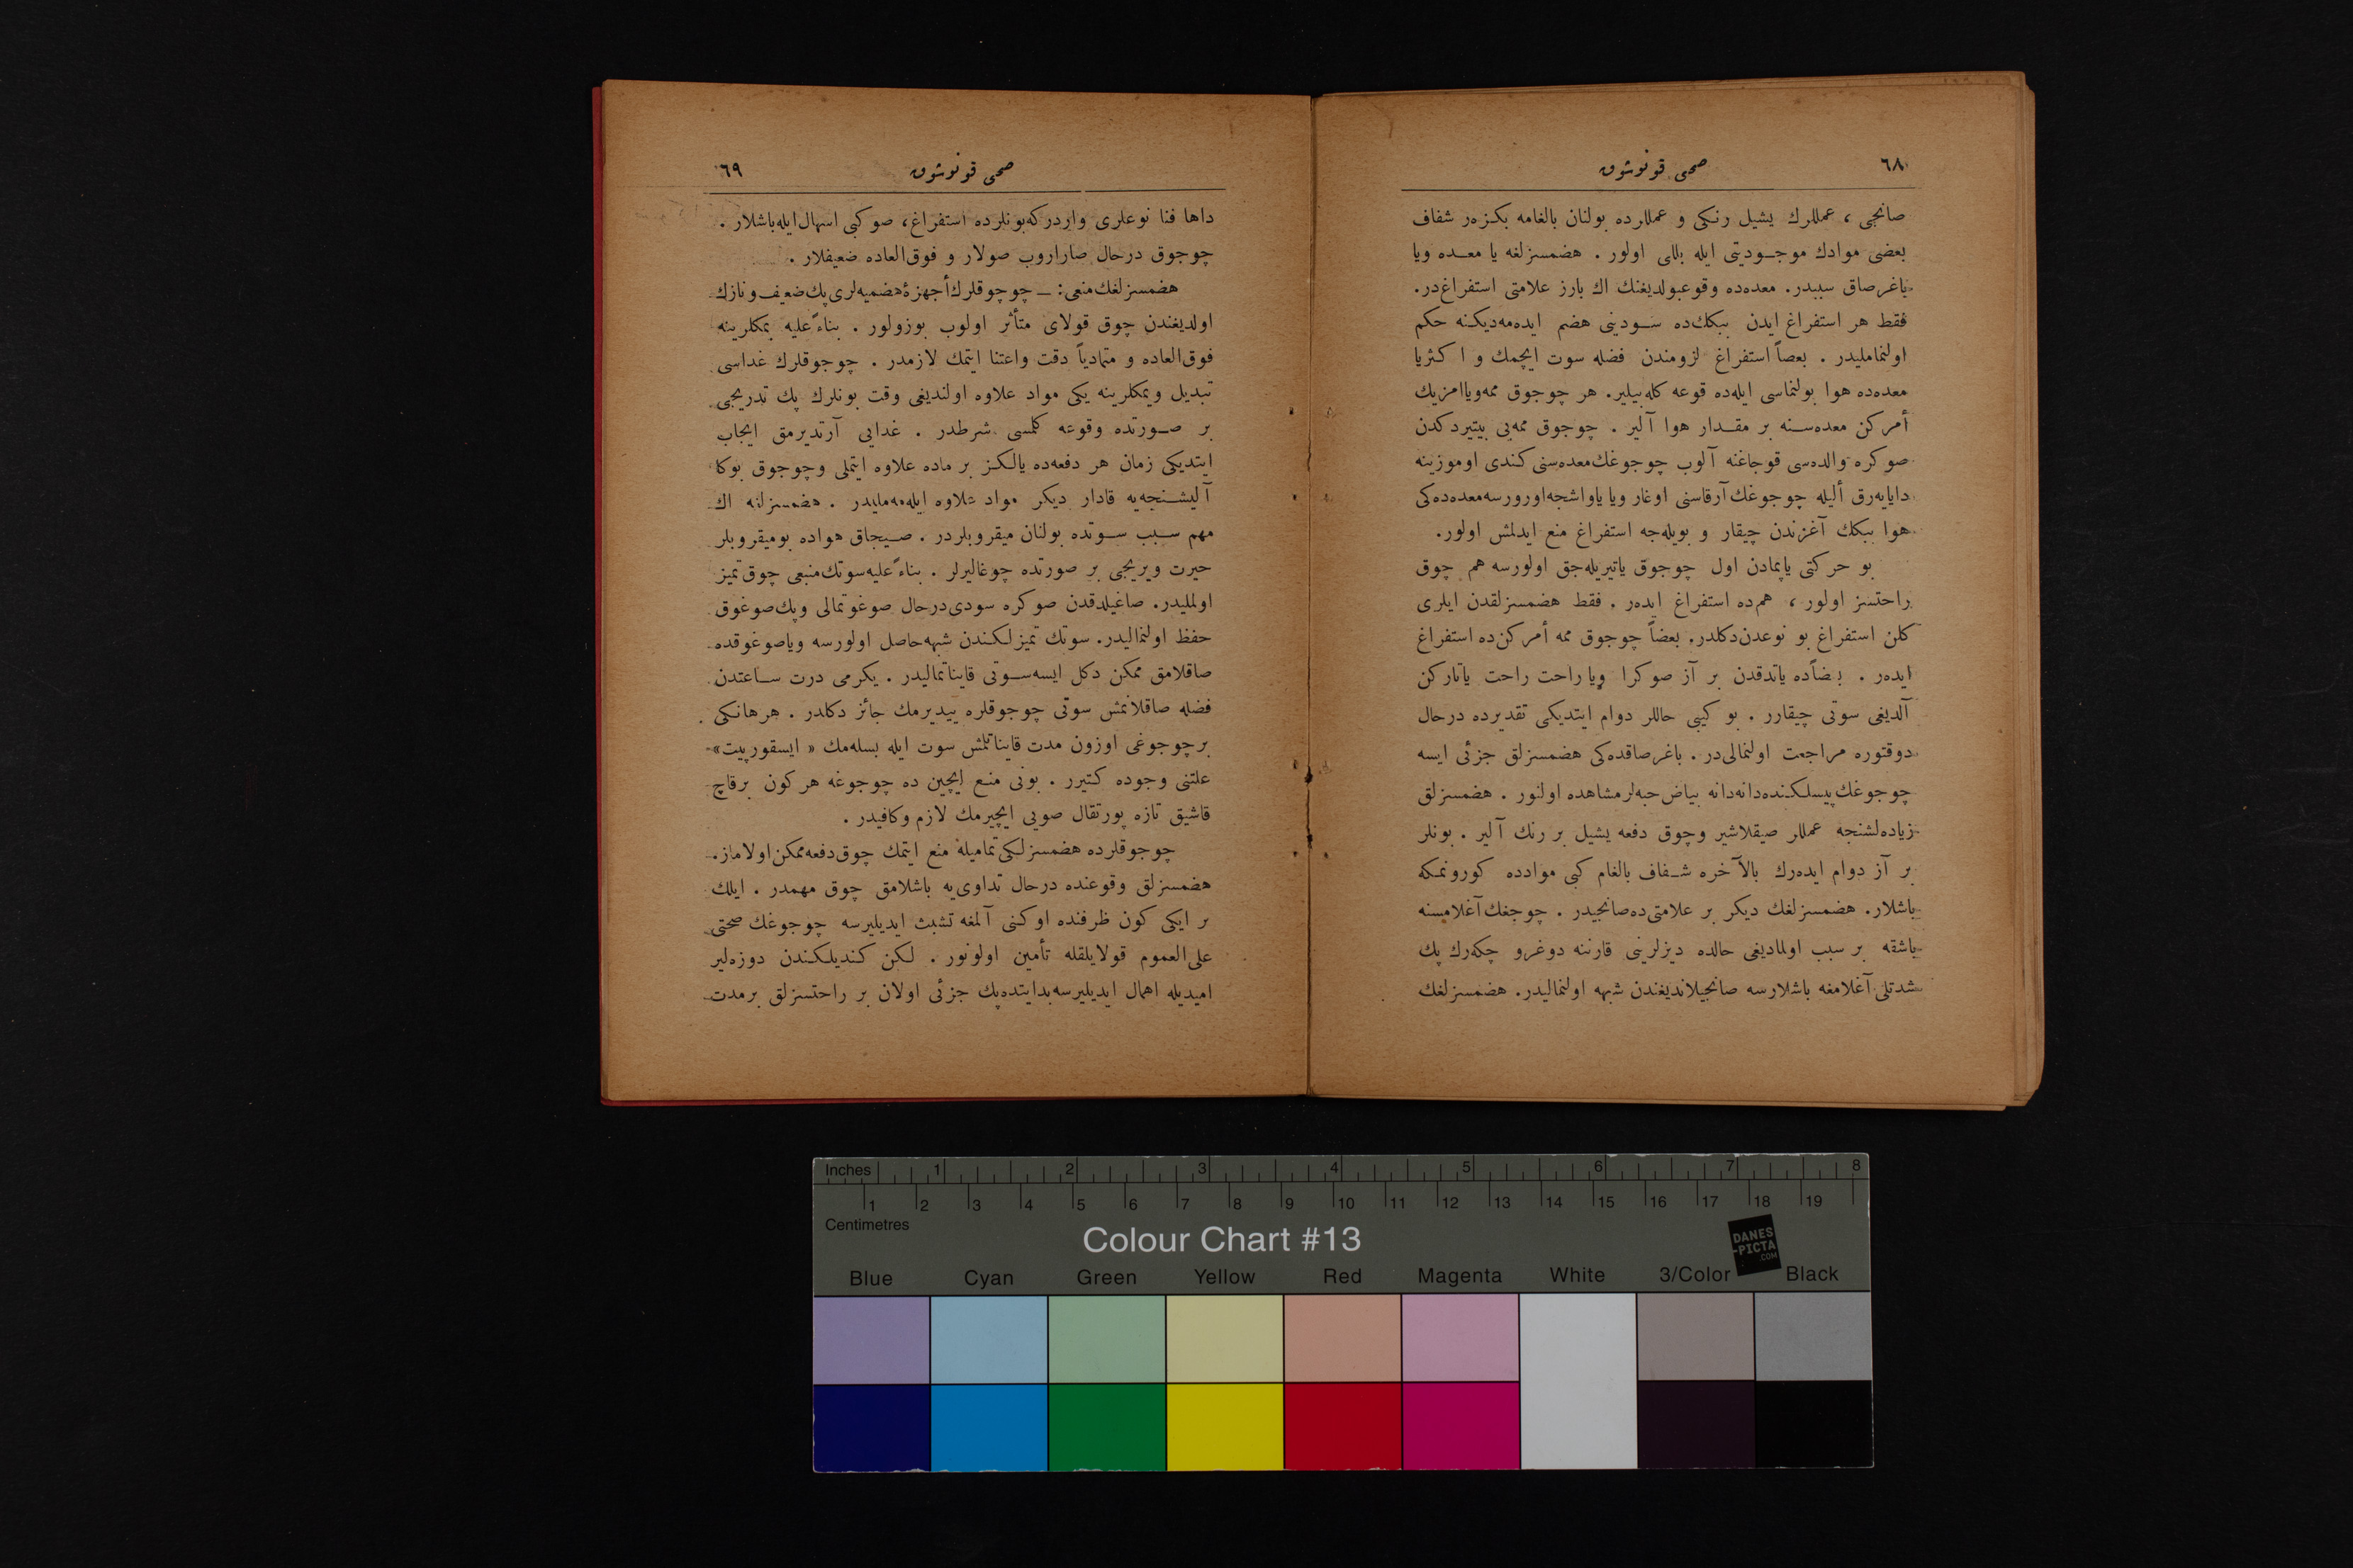 ٦٨
صحی قونوشوق
صانجی ، عمللرك یشیل رنكی و عمللرده بولنان بالغامه بكزەر شفاف
بعضی موادك موجودیتی ایله بللی اولور . هضمسزلغه یا معده ویا
باغرصاق سببدر. معدەده وقوعبولدیغنك اك بارز علامتی استفراغ‌در.
فقط هر استفراغ ایدن ببكك‌ده سودینی هضم ایدەمەدیكنه حكم
اولنماملیدر . بعضاً استفراغ لزومندن فضله سوت ایچمك و اكثریا
معدەده هوا بولنماسی ایله‌ده قوعه كله‌بیلیر. هر چوجوق ممه‌ویاامزیك
أمركن معده‌سنه بر مقدار هوا آلیر . چوجوق ممه‌یی بیتیردكدن
صوكره والده‌سی قوجاغنه آلوب چوجوغك معده‌سنی كندی اوموزینه
دایایه‌رق ألیله چوجوغك آرقاسنی اوغار ویا یاواشجه‌اورورسه‌معده‌ده‌كی
هوا ببكك آغزندن چیقار و بویله‌جه استفراغ منع ایدلمش اولور.
بو حركتی یاپمادن اول چوجوق یاتیریله‌جق اولورسه هم چوق
راحتسز اولور ، هم‌ده استفراغ ایدەر . فقط هضمسزلقدن ایلری
كلن استفراغ بو نوعدن‌دكلدر. بعضاً چوجوق ممه أمركن‌ده استفراغ
ایدەر . بعضاًده یاتدقدن بر آز صوكرا ویا راحت راحت یاتاركن
آلدیغی سوتی چیقارر . بو كیبی حاللر دوام ایتدیكی تقدیرده درحال
دوقتوره مراجعت اولنمالی‌در . باغرصاقده‌كی هضمسزلق جزئی ایسه
چوجوغك پیسلكنده‌دانه‌دانه بیاض حبه‌لرمشاهده اولنور . هضمسزلق
زیاده‌لشنجه عمللر صیقلاشیر وچوق دفعه یشیل بر رنك آلیر . بونلر
بر آز دوام ایدەرك بالآخره شفاف بالغام كبی موادده كورونمكه
باشلار. هضمسزلغك دیكر بر علامتی‌ده‌صانجیدر . چوجغك آغلامسنه
باشقه بر سبب اولمادیغی حالده دیزلرینی قارننه دوغرو چكه‌رك پك
شدتلی آغلامغه باشلارسه صانجیلاندیغندن شبهه اولنمالیدر. هضمسزلغك
صحی قونوشوق
٦٩
داها فنا نوعلری واردركه‌بونلرده استفراغ، صو كبی اسهال‌ایله‌باشلار .
چوجوق درحال صاراروب صولار و فوق‌العاده ضعیفلار .
هضمسزلغك منعی: — چوچوقلرك أجهزۀ هضمیه‌لری پك ضعیف و نازك
اولدیغندن چوق قولای متأثر اولوب بوزولور . بناءً علیه یمكلرینه
فوق‌العاده و متمادیاً دقت واعتنا ایتمك لازمدر . چوجوقلرك غداسی
تبدیل ویمكلرینه یكی مواد علاوه اولندیغی وقت بونلرك پك تدریجی
بر صورتده وقوعه كلمسی شرطدر . غدایی آرتدیرمق ایجاب
ایتدیكی زمان هر دفعه‌ده یالكز بر ماده علاوه ایتملی وچوجوق بوكا
آلیشنجه‌یه قادار دیكر مواد علاوه ایله‌مه‌ملیدر . هضمسزلغه اك
مهم سبب سوتده بولنان میقروبلردر . صیجاق هواده بومیقروبلر
حیرت ویریجی بر صورتده چوغالیرلر . بناءً علیه سوتك منبعی چوق تمیز
اولملیدر. صاغیلدقدن صوكره سودی درحال صوغوتمالی وپك صوغوق
حفظ اولنمالیدر. سوتك تمیزلكندن شبهه حاصل اولورسه ویاصوغوقده
صاقلامق ممكن دكل ایسه سوتی قایناتمالیدر . یكرمی درت ساعتدن
فضله صاقلانمش سوتی چوجوقلره ییدیرمك جائز دكلدر . هرهانكی
برچوجوغی اوزون مدت قایناتلمش سوت ایله بسله‌مك « ایسقورپیت»
علتنی وجوده كتیرر . بونی منع ایچین ده چوجوغه هركون برقاچ
قاشیق تازه پورتقال صویی ایچیرمك لازم وكافیدر .
چوجوقلرده هضمسزلكی تمامیله منع ایتمك چوق دفعه‌ممكن اولاماز.
هضمسزلق وقوعنده درحال تداوی‌یه باشلامق چوق مهمدر . ایلك
بر ایكی كون ظرفنده اوكنی آلمغه تشبث ایدیلیرسه چوجوغك صحتی
علی‌العموم قولایلقله تأمین اولونور . لكن كندیلكندن دوزه‌لیر
امیدیله اهمال ایدیلیرسه‌بدایتده‌پك جزئی اولان بر راحتسزلق برمدت
Inches 1 2 3 4 5 6 7 8
1 2 3 4 5 6 7 8 9 10 11 12 13 14 15 16 17 18 19
Centimetres
Colour Chart #13
DANES
-PICTA
.COM
Blue Cyan Green Yellow Red Magenta White 3/Color Black